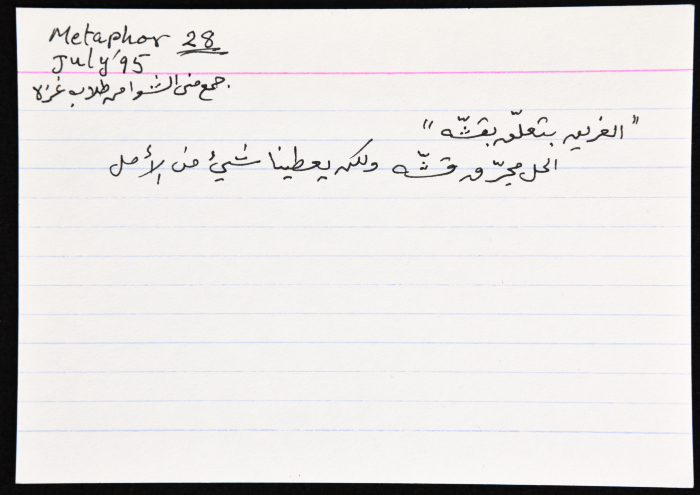 Metaphor 28
July '95
جمع منى الشوا من طلاب غزة
"الغريق بتعلّق بقشّه"
الحل مجرّد قشّه ولكن يعطينا شيئ من الأمل